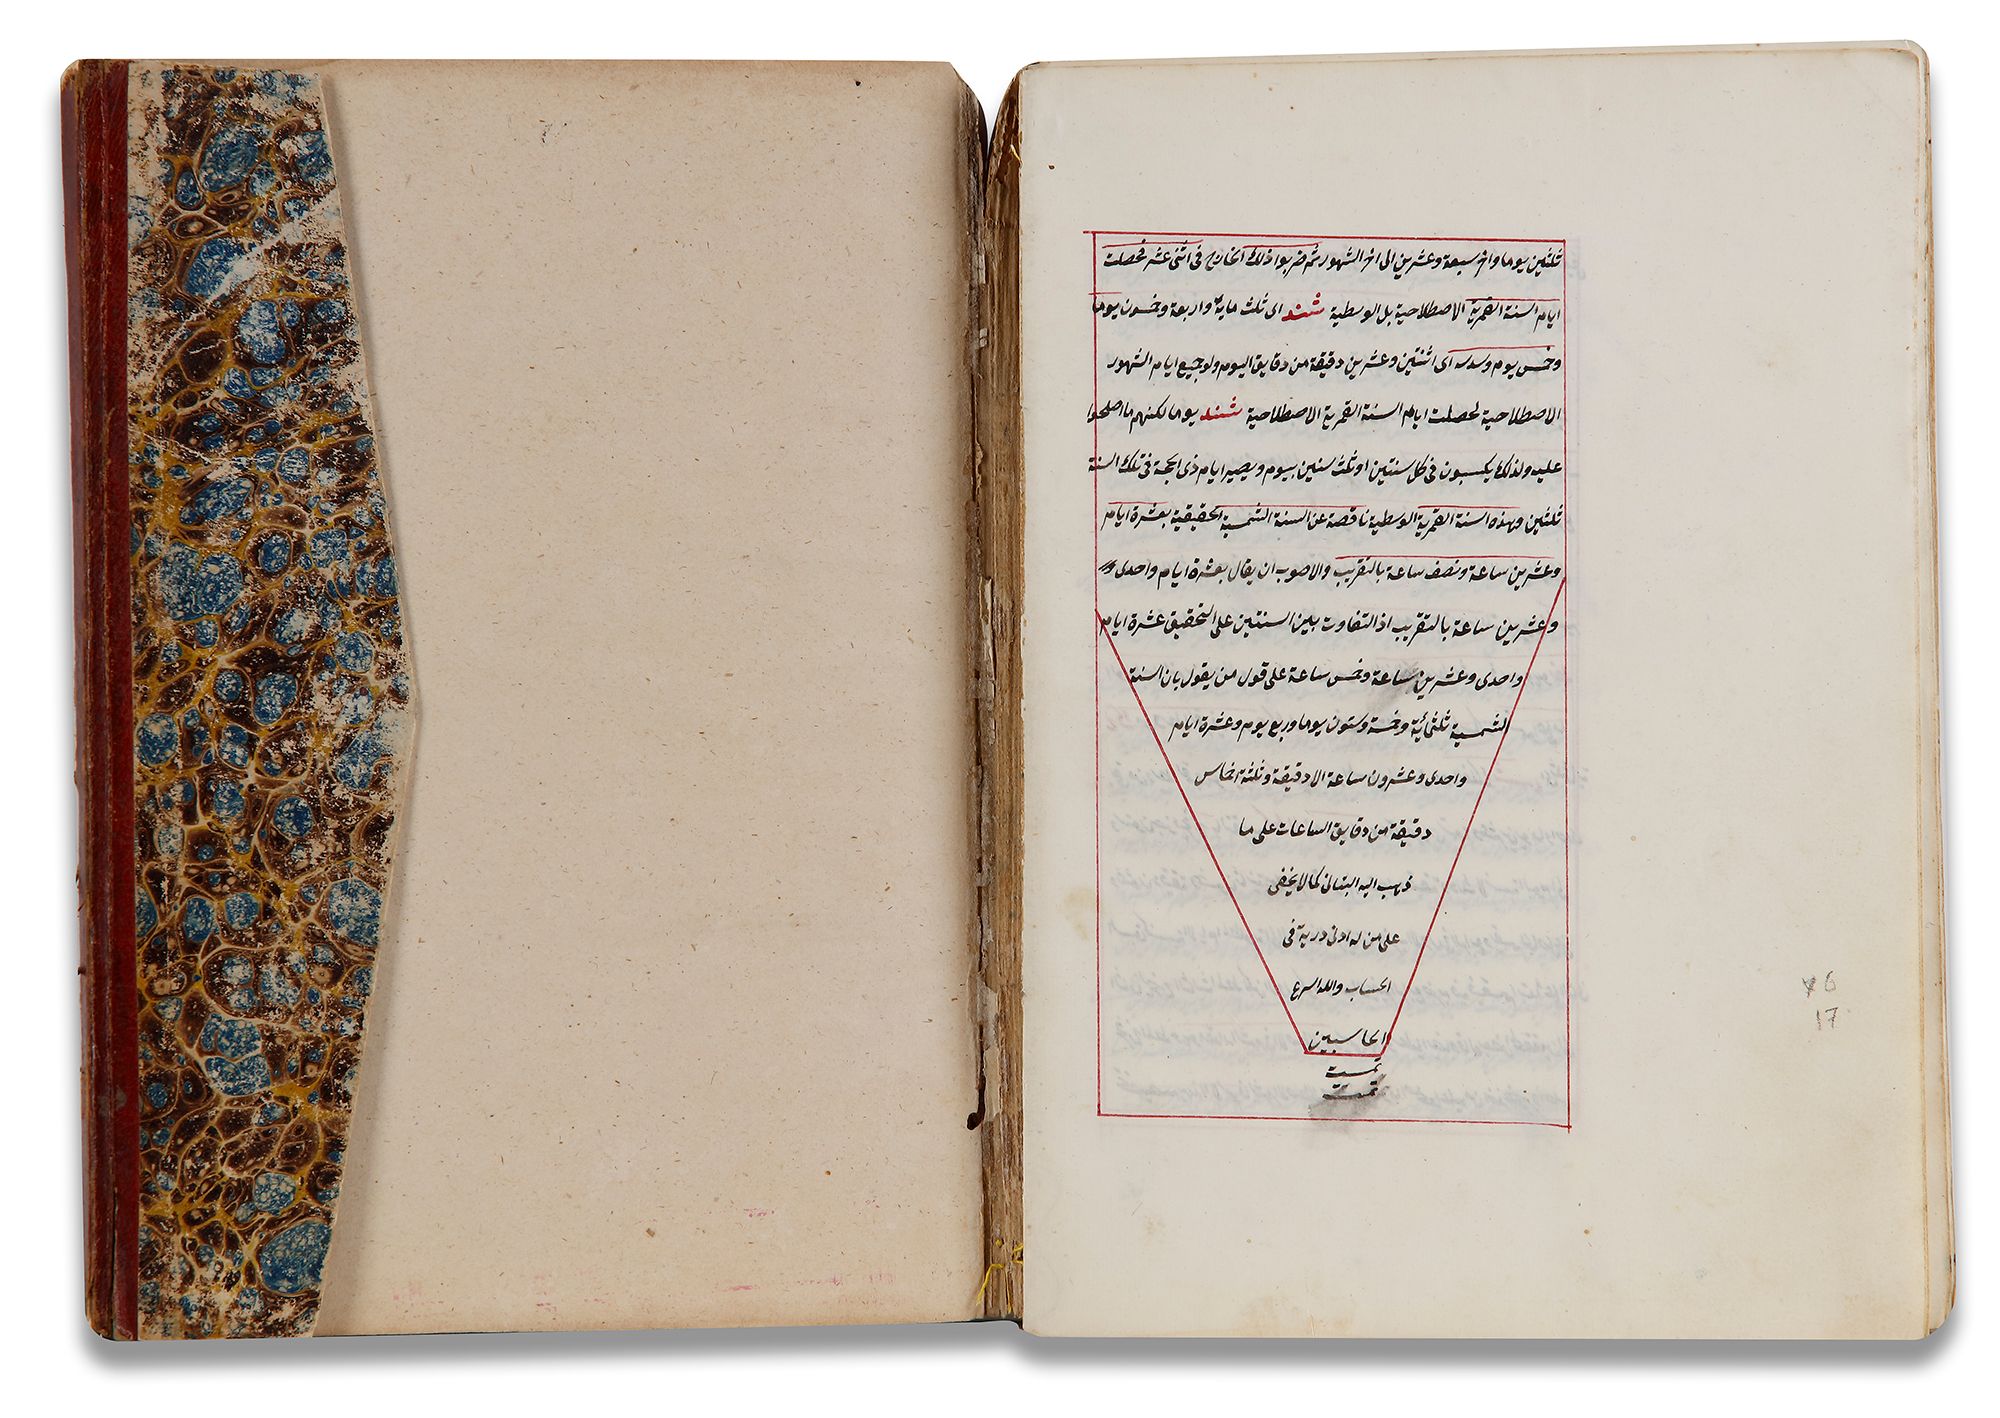 ثلثين يوما واخر سبعة وعشرين الى اخر الشهور ثم ضربوا ذلك الخارج فى اثنى عشر فحصلت
ايام السنة القمرية الاصطلاحية بل الوسطية شند اى ثلث ماية واربعة وخمسون يوما
وخمس يوم وسدسه اى اثنتين وعشرين دقيقة من دقايق اليوم ولو جميع ايام الشهور
الاصطلاحية لحصلت ايام السنة القمرية الاصطلاحية شند يوما لكنهم ما اصلحوا
عليه ولذلك يكبسون فى كل سنتين او ثلث سنين بيوم ويصير ايام ذى الحجة فى تلك السنة
ثلثين وهذه السنة القمرية الوسطية ناقصة عن السنة الشمسية الحقيقية بعشرة ايام
وعشرين ساعة ونصف ساعة بالتقريب والاصوب ان يقال بعشرة ايام واحدى
وعشرين ساعة بالتقريب اذ التفاوت بين السنتين على التحقيق عشرة ايام
واحدى وعشرين ساعة وخمس ساعة على قول من يقول بان السنة
الشمسية ثلثمائية وخمسة وستون يوما وربع يوم وعشرة ايام
واحدى وعشرون ساعة الا دقيقة وثلثة اخماس
دقيقة من دقايق الساعات على ما
ذهب اليه البتانى كما لا يخفى
على من له ادنى دربة فى
الحساب والله اسرع
الحاسبين
تمت
تمت
6
17